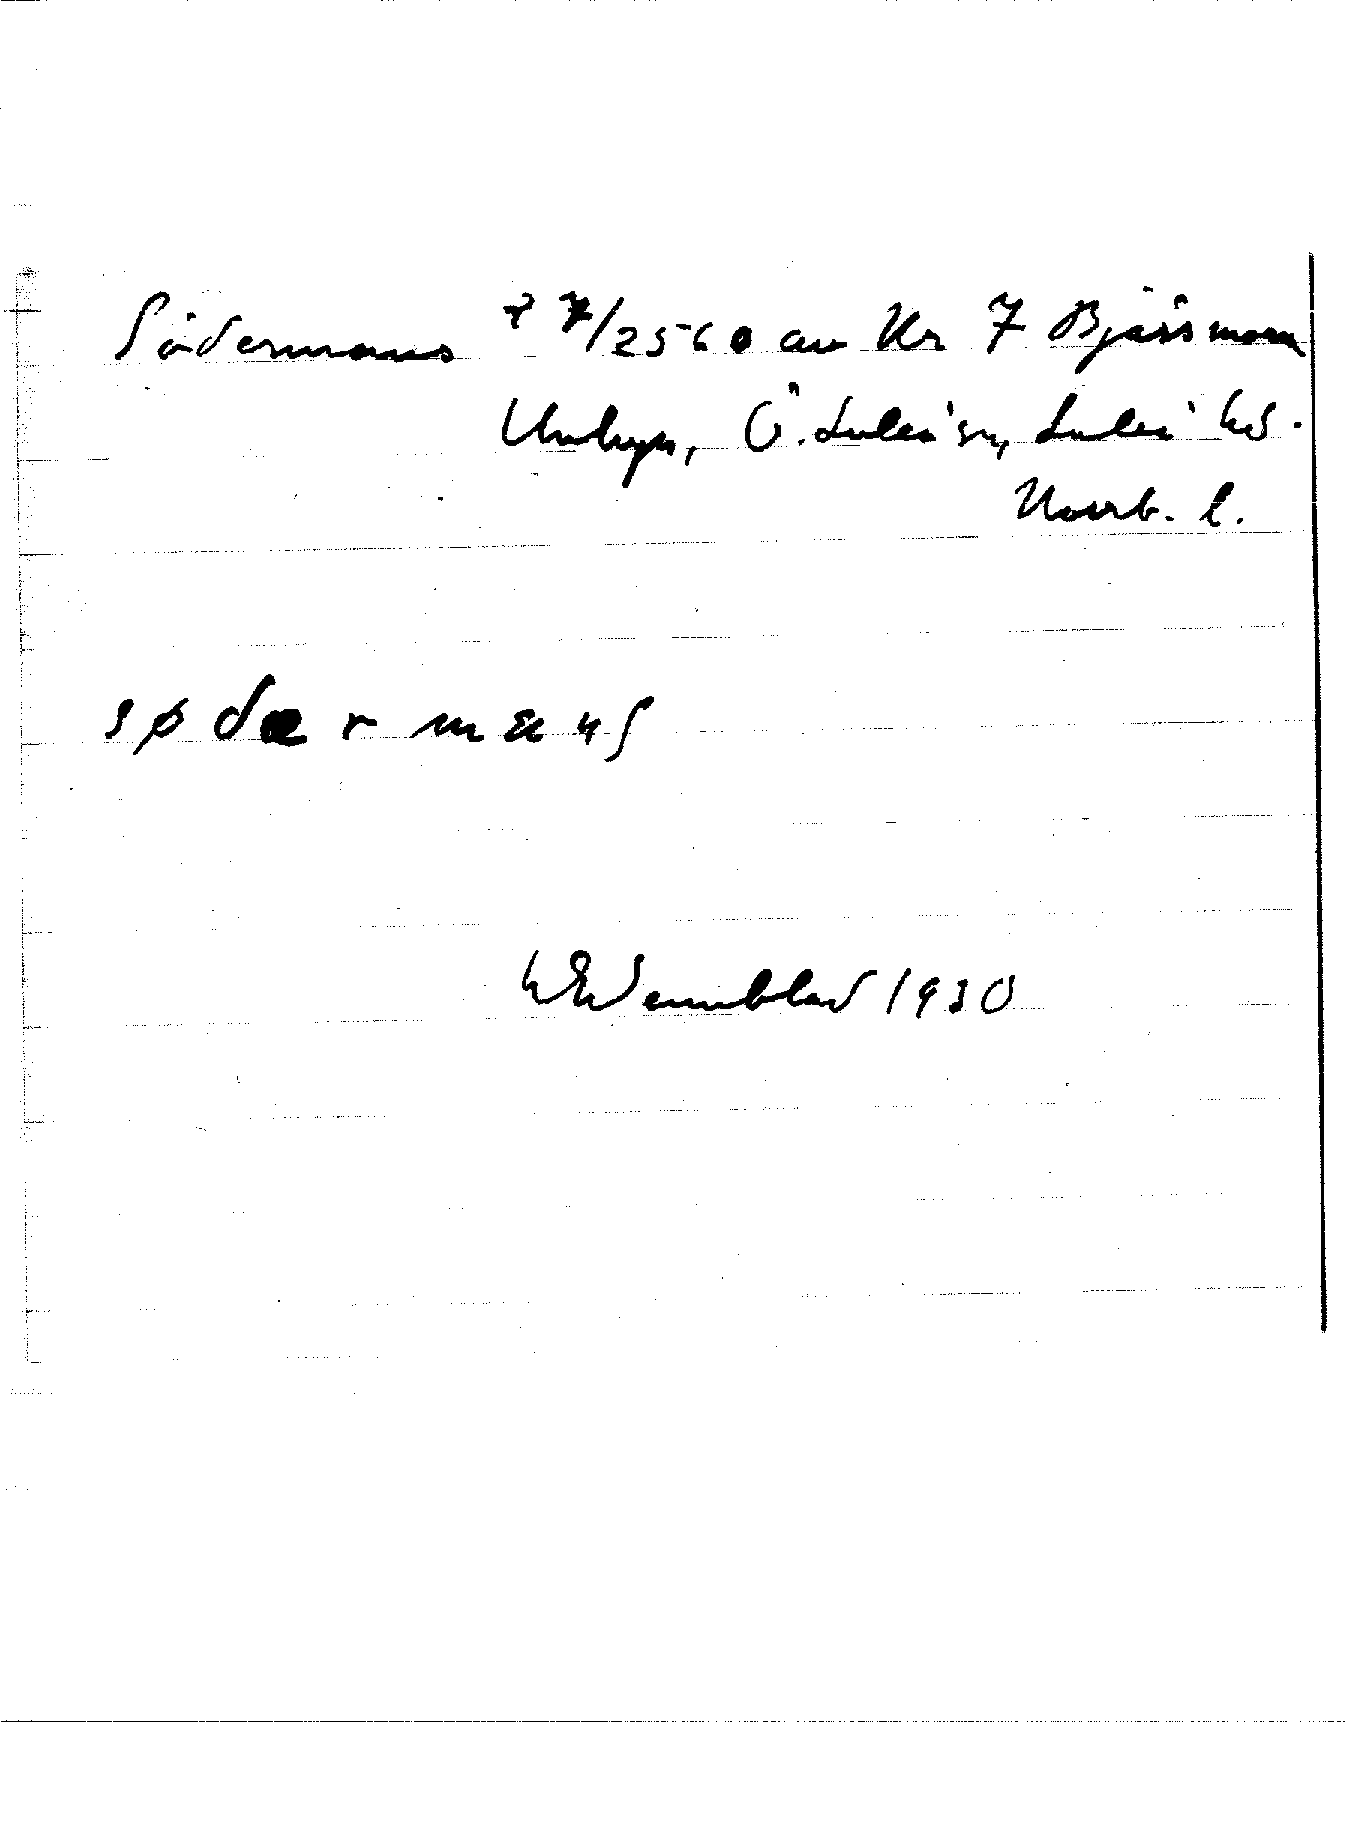 Södermans 7/2560 av Nr 7 Bjässmora
Unbyn, Ö. Luleå sn, Luleå hd.
Norrb. l.
sødærmans
W Wennblad 1930